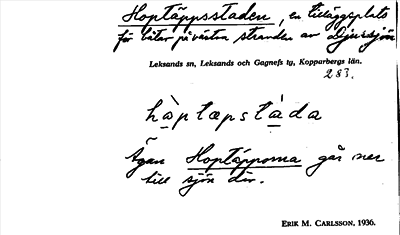 Hoptäppsstaden, en tilläggsplats
för båtar på västra stranden av Djursjön
Leksands sn, Leksands och Gagnefs tg, Kopparbergs län.
283.
hàptæpstàda
Ägan Hoptäpporna går ner
till sjön där.
ERIK M. CARLSSON, 1936.